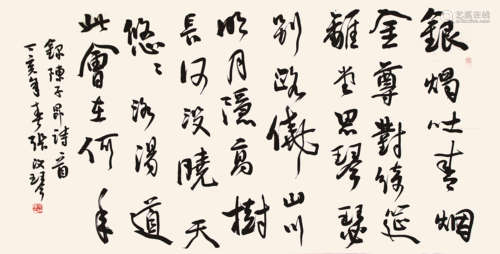 銀燭吐青烟
金尊對綺筵
離堂思琴瑟
別路繞山川
明月隱高樹
長河没曉天
悠々洛陽道
此會在何年
錄陳子昂詩一首
丁亥年春張